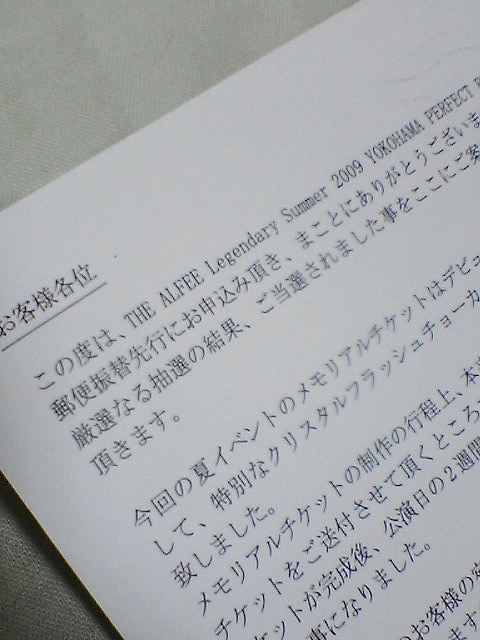 お客様各位
この度は、THE ALFEE Legendary Summer 2009 YOKOHAMA PERFECT
郵便振替先行にお申込み頂き、まことにありがとうございま
厳選なる抽選の結果、ご当選されました事をここにご案
頂きます。
今回の夏イベントのメモリアルチケットはデビュ
して、特別なクリスタルフラッシュチョーカ
致しました。
メモリアルチケットの制作の行程上、本
チケットをご送付させて頂くところ
ケットが完成後、公演日の2週間
事になりました。
のお客様の